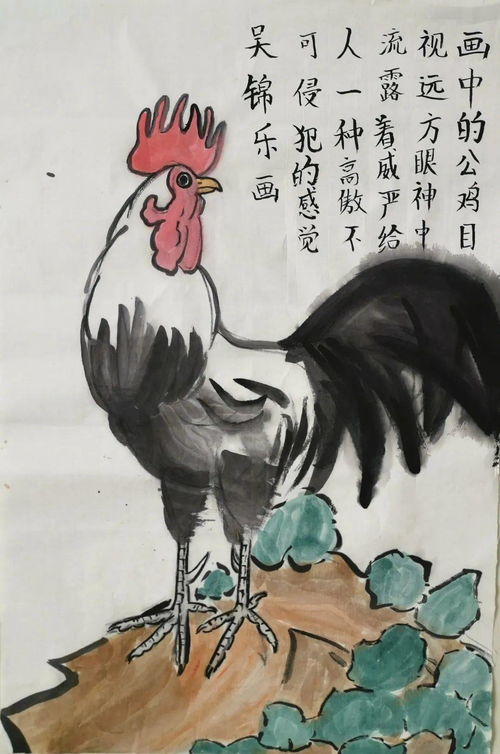 画中的公鸡目
视远方眼神中
流露着威严给
人一种高傲不
可侵犯的感觉
吴锦乐画